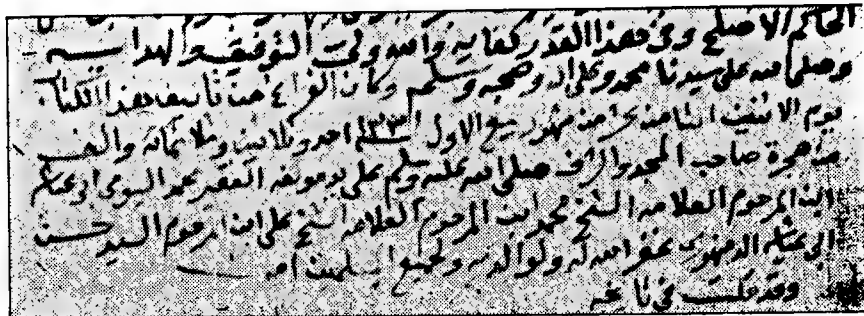 الحاكم الاصلح وفي هذا القدر كفاية والله ولي التوفيق والهداية
وصلى الله على سيدنا محمد وعلى اله وصحبه وسلم وكان الفراغ من تأليف هذا الكتاب
يوم الاثنين الثامن من شهر ربيع الاول ١٣٣١ احد وثلاثين وثلاثمائة والف
من هجرة صاحب المجد والشرف صلى الله عليه وسلم على يد مؤلفه الفقير محمد البيومي ابو عياشه
ابن المرحوم العلامه الشيخ محمد ابن المرحوم العلامه الشيخ علي ابن المرحوم السيد حسن
ابي عياشه الدمنهوري غفر الله له ولوالديه ولجميع المسلمين امين
وقد قلت في تاريخه